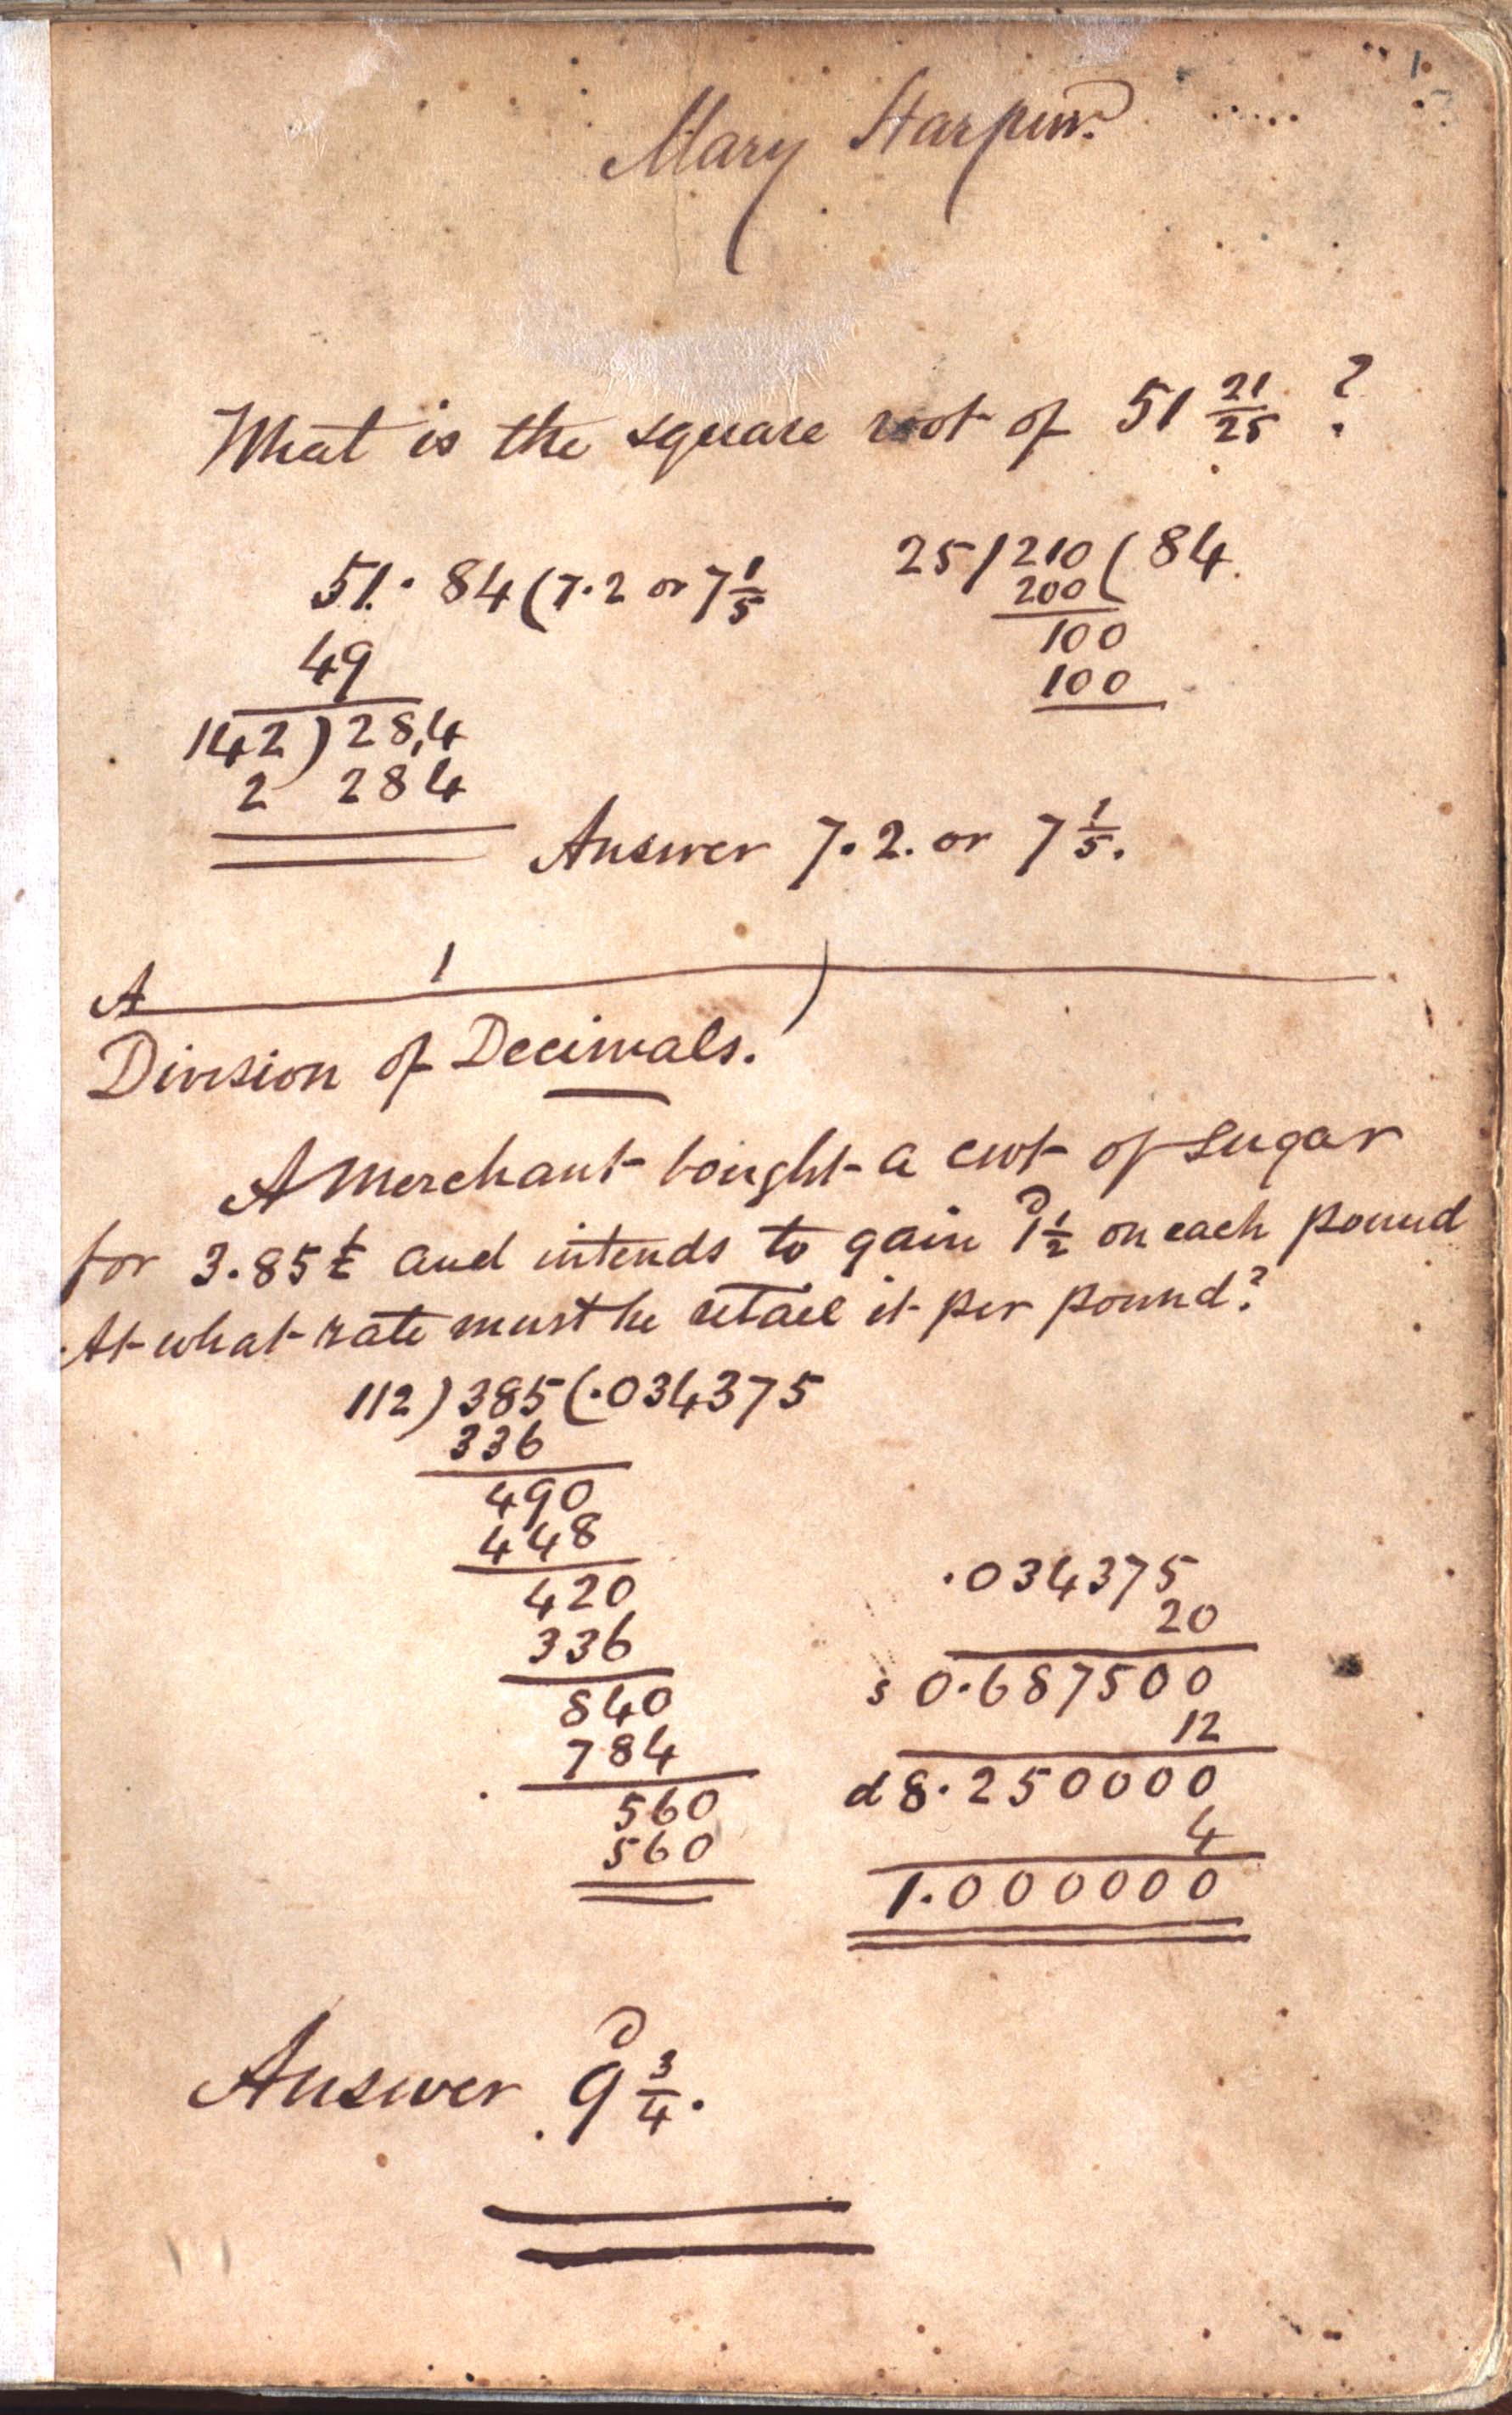 1
Mary Harpur.
What is the square root of 51 21/25 ?
51. 84 (7.2 or 7 1/5
49
142 ) 28,4
2 284
25 / 210 ( 84.
200
100
100
Answer 7.2. or 7 1/5.
A 1 )
Division of Decimals.
A Merchant bought a cwt of sugar
for 3.85 £ and intends to gain 1 1/2 d on each pound
At what rate must he retail it per pound?
112 ) 385 ( .034375
336
490
448
420
336
840
784
560
560
.034375
20
s 0.687500
12
d 8.250000
4
1.000000
Answer 9 3/4 d.